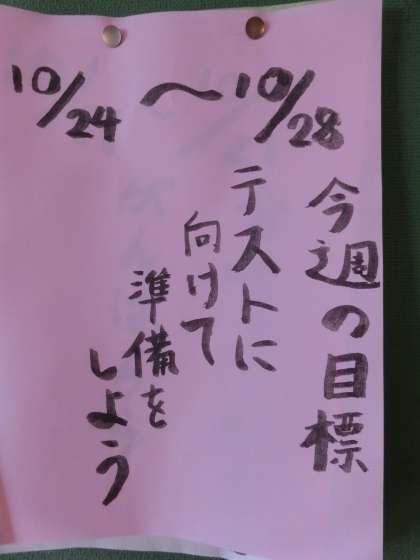 10/24～10/28
今週の目標
テストに
向けて
準備を
しよう